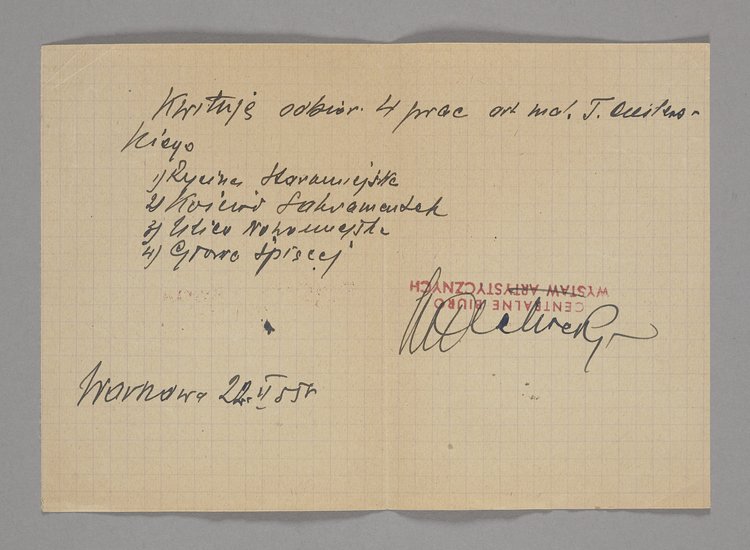 Kwituję odbiór 4 prac art. mal. T.
kiego
1) Rycina Staromiejska
2) Kościół Sakramentek
3) Ulica Nowomiejska
4) Głowa śpiącej
CENTRALNE BIURO
WYSTAW ARTYSTYCZNYCH
Warszawa 22 VI 55 r